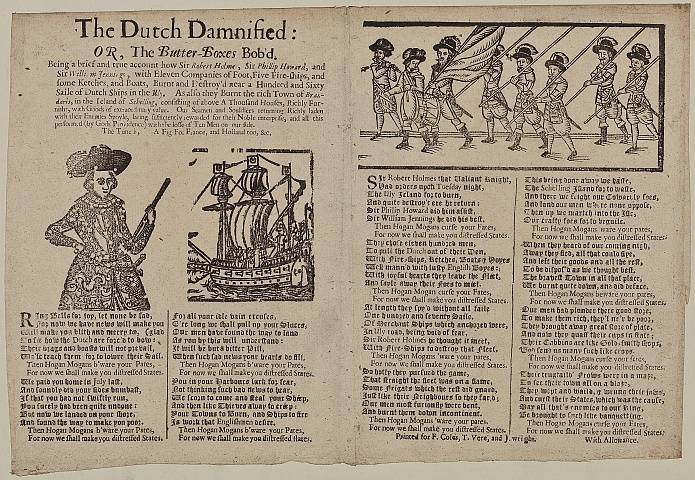 The Dutch Damnified:
OR, The Butter-Boxes Bob'd.
Being a brief and true account how Sir Robert Holme, Sir Philip Howard, and
Sir William Jennings, with Eleven Companies of Foot, Five Fire-ships, and
some Ketches, and Boats, Burnt and Destroy'd near a Hundred and Sixty
Saile of Dutch Ships in the Uly, As also they Burnt the rich Town of
in the Island of Schelling, consisting of above A Thousand Houses, Richly Fur-
nisht, with Goods of extraordinary value. Our Seamen and Souldiers returning Richly laden
with their Enemies Spoyls, being sufficiently rewarded for their Noble interprise, and all this
performed (by Gods Providence) with the losse of Ten Men on our side.
The Tune is, A Fig For France, and Holland too, &c.
Ring Bells for joy, let none be sad,
For now we have news will make you
Will make you blith and merry too, [glad
To see how the Dutch are forc'd to bow;
Their brags and boasts will not prevail,
We'le teach them for to lower their Sail.
Then Hogan Mogans b'ware your Pates,
For now we shall make you distressed States.
We paid you home in July last,
And soundly did your Boers bumbast,
If that you had not swiftly run,
You surely had been quite undone:
But now we landed on your shore,
And found the way to make you poor.
Then Hogan Mogans b'ware your Pates,
For now we shall make you distressed States.
For all your idle vain excuses,
E're long we shall pull up your Sluces,
Our men have found the way to land
As you by this will understand:
It will be but a bitter Pill,
When such sad news your hearts do fill,
Then Hogan Mogans b'ware your Pates,
For now we shall make you distressed States.
You in your Harbours lurk for fear,
Not thinking such bad news to hear,
We scorn to come and steal your Sheep,
And then like Thieves away to creep
Your Towns to Burn, and Ships to fire
Is work that Englishmen desire.
Then Hogan Mogans b'ware your Pates,
For now we shall make you distressed States.
Sir Robert Holmes that Valiant Knight,
Had orders upon Tuesday night,
The Uly Island for to burn,
And quite destroy't ere he return:
Sir Philip Howard did him assist,
Sir William Jennings he did his best.
Then Hogan Mogans curse your Fates,
For now we shall make you distressed States.
They chose eleven hundred men,
To pull the Dutchmen of their Den,
With Fire-ships, Ketches, Boats, & Boyes
Well mann'd with lusty English Boyes;
With joyful hearts they leave the Fleet,
And sayle away their Foes to meet.
Then Hogan Mogans curse your Fates,
For now we shall make you distressed States.
At length they spy'd without all faile
One hundred and seventy Saile,
Of Merchant Ships which anchored were,
In Uly road, being void of fear,
Sir Robert Holmes he thought it meet,
With Fire-Ships to destroy that Fleet.
Then Hogan Mogans 'ware your pates,
For now we shall make you distressed States.
So hotly they pursued the game,
That straight the fleet was on a flame,
Some Frigats which the rest did guard,
Just like their Neighbours so they far'd;
Our men most furiously were bent,
And burnt them down incontinent.
Then Hogan Mogans 'ware your pates,
For now we shall make you distressed States.
This being done away we haste,
The Schelling Island for to waste.
And there we fright our Cowardly foes,
And land our men where none oppose.
Then up we march into the Isle,
Our crafty foes for to beguile.
Then Hogan Mogans 'ware your pates,
For now we shall make you distressed States.
When they heard of our coming nigh,
Away they fled, all that could flye,
And left their goods and all the rest,
To be dispos'd as we thought best.
The Town in all that place,
We burnt quite down, and did deface.
Then Hogan Mogans beware your pates,
For now we shall make you distressed States.
Our men had plunder there good store,
To make them rich, they'l ne'r be poor,
They brought away great store of plate,
And now they quaff their cups in state;
Their Cabbins are like Gold-smiths shops,
For fear so many such like crops.
Then Hogan Mogans curse your Fates,
For now we shall make you distressed States.
Their Vrows were in a maze,
To see their town all on a blaze,
They wept and waild, & wrung their hands,
And curst their States, which was the cause,
May all that's enemies to our King,
Be brought to such like banqueting.
Then Hogan Mogans curse your Fates,
For now we shall make you distressed States.
Printed for F. Coles, T. Vere, and J. wright.
With Allowance.